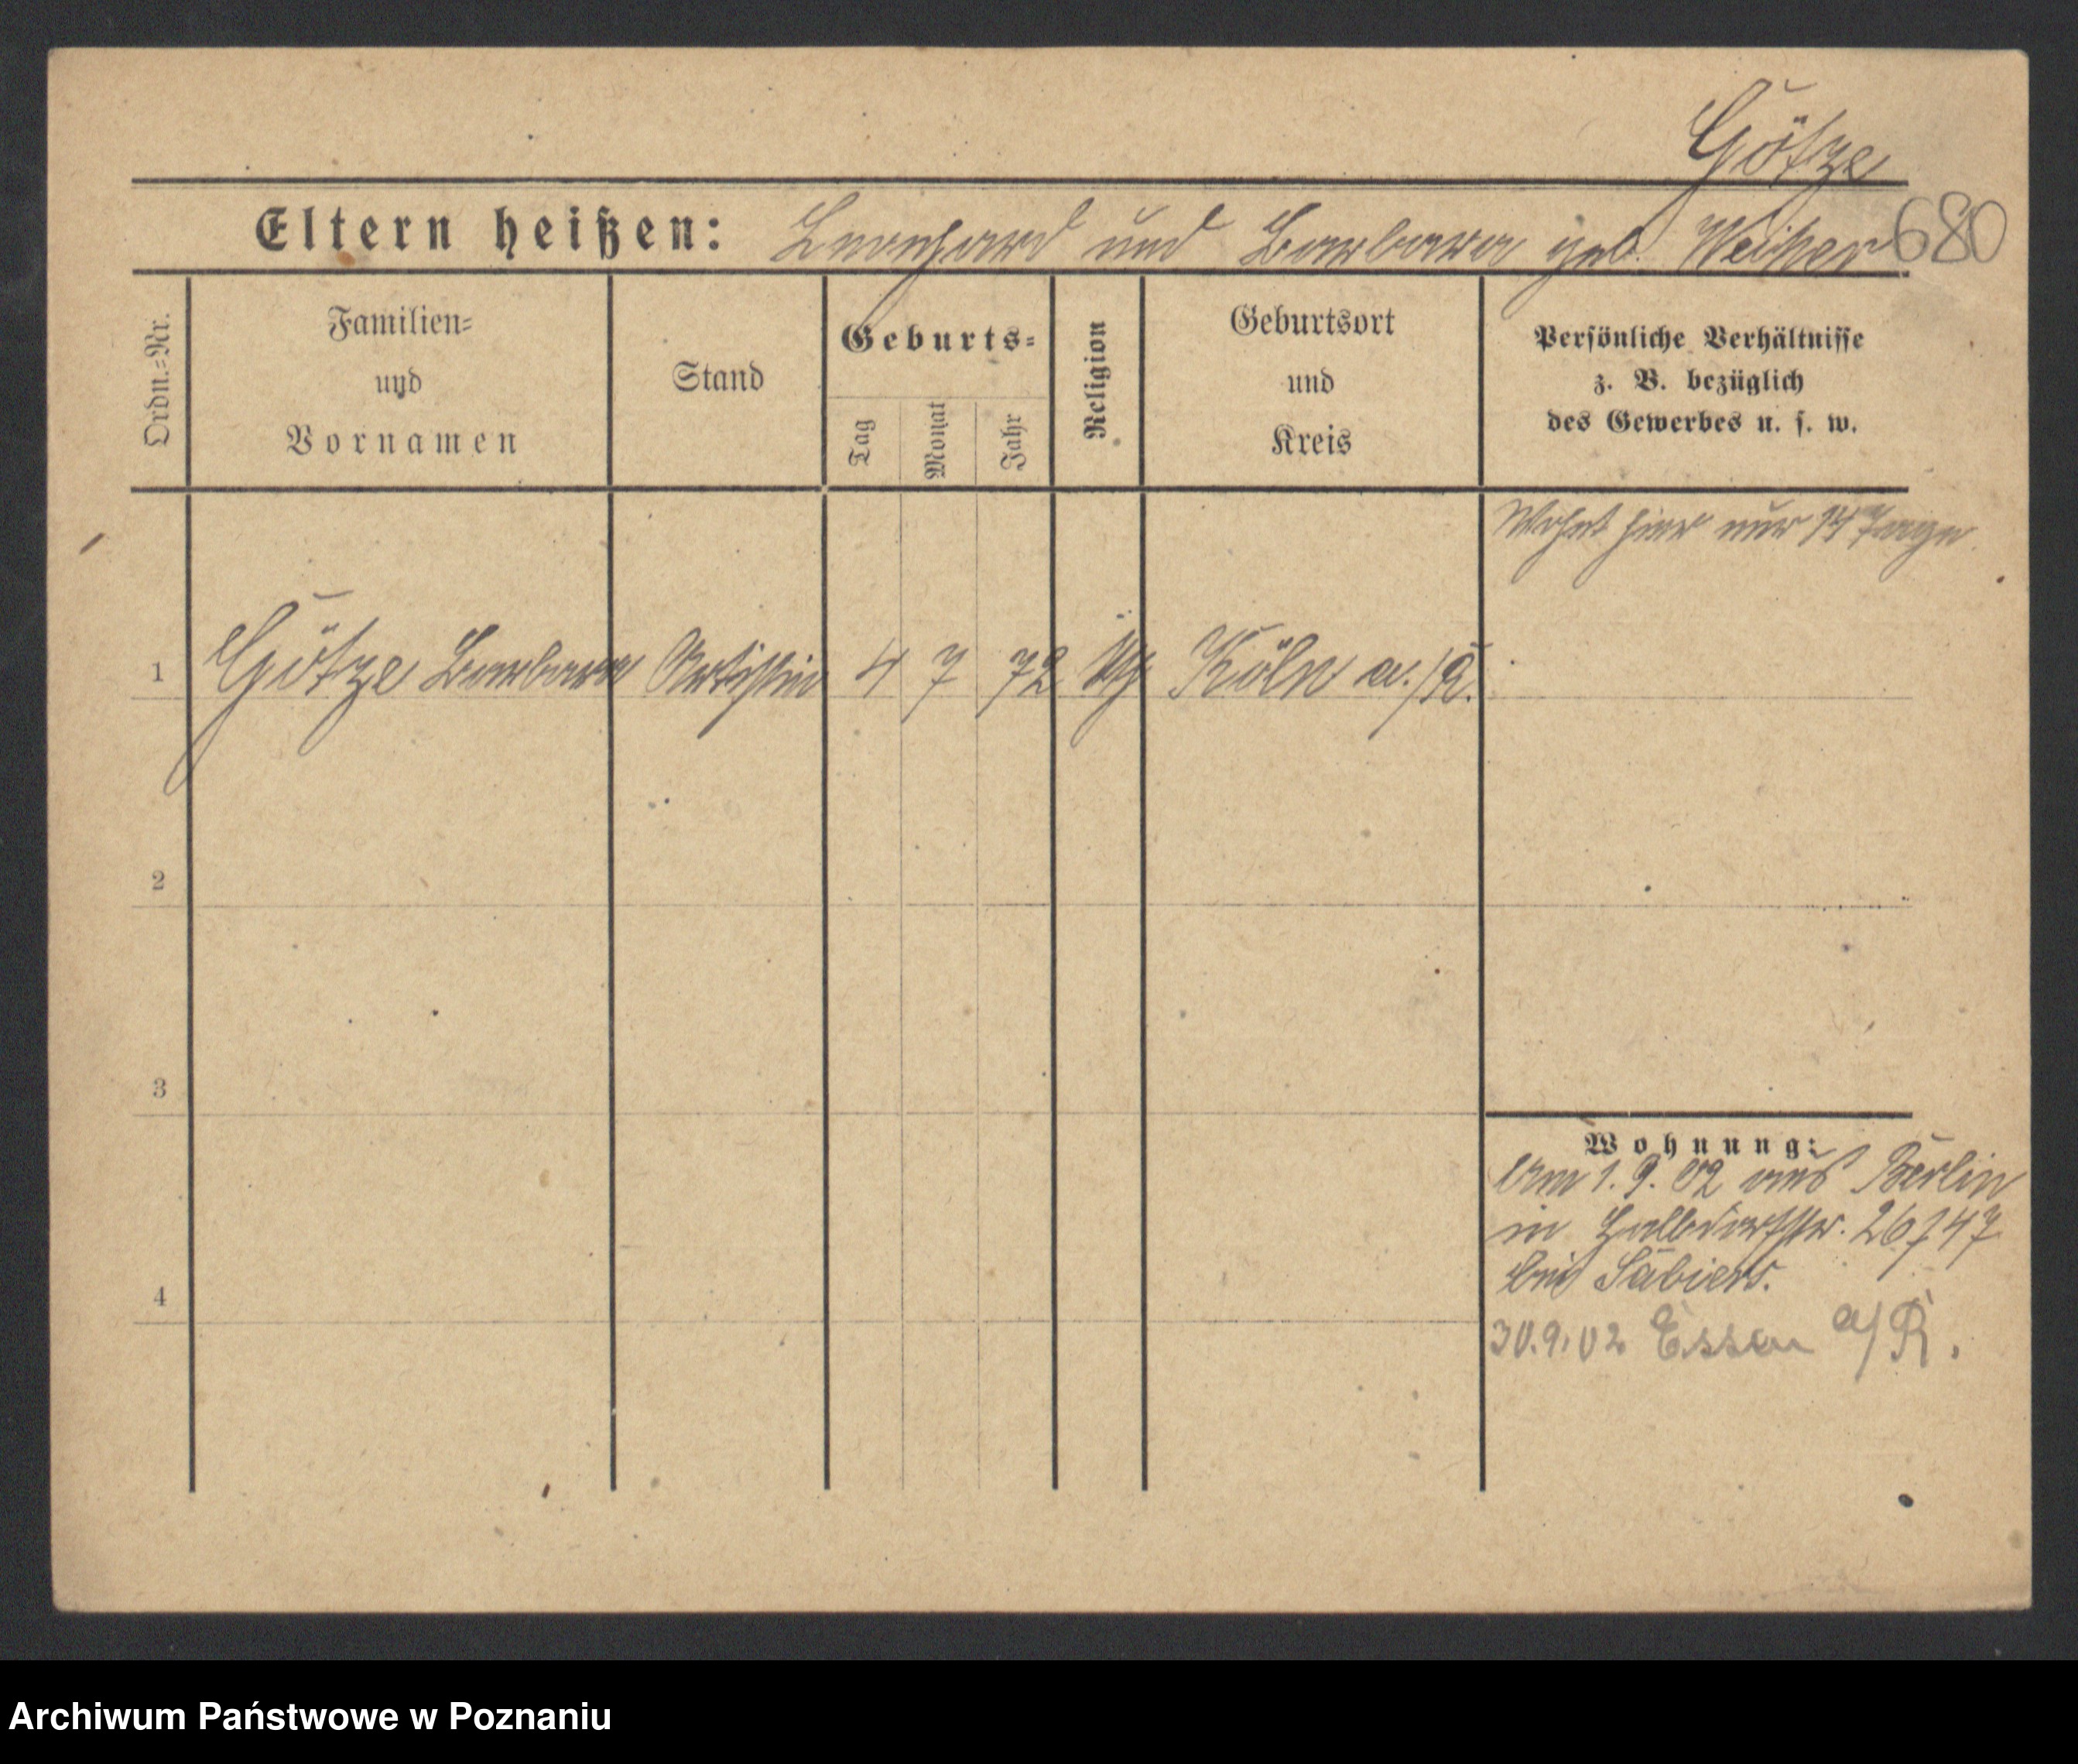 Götze
680
Eltern heißen: Leonhard und Barbara geb. Weiher
Ordn.-Nr.
Familien-
und
Vornamen
Stand
Geburts-
Tag
Monat
Jahr
Religion
Geburtsort
und
Kreis
Persönliche Verhältnisse
z. B. bezüglich
des Gewerbes u. s. w.
Wohnt hier nur 14 Tage
1 Götze Barbara Artistin 4 7 72 Köln a./R.
2
3
4
Wohnung:
Am 1. 9. 02 aus Berlin
in Halbdorfstr. 26/47
bei
30.9.02 Essen a/R.
Archiwum Państwowe w Poznaniu